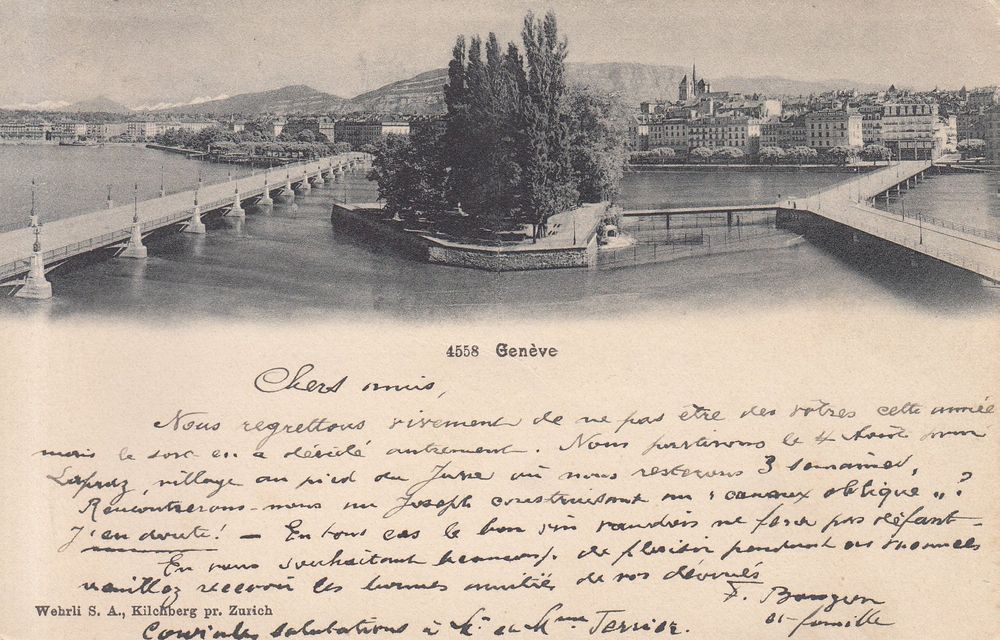 4558 Genève
Chers amis,
Nous regrettons vivement de ne pas être des vôtres cette année
mais le sort en a décidé autrement. Nous partirons le 4 Août pour
village au pied du Jura où nous resterons 3 semaines.
Rencontrerons-nous un Joseph construisant un "canaux oblique"?
J'en doute! — En tous cas le bon vin vaudois ne fera pas défaut —
En vous souhaitant beaucoup de plaisir pendant
veuillez recevoir les bonnes amitiés de vos dévoués
F.
et famille
Wehrli S. A., Kilchberg pr. Zurich
Cordiales salutations à Mr et Mme Terrier.